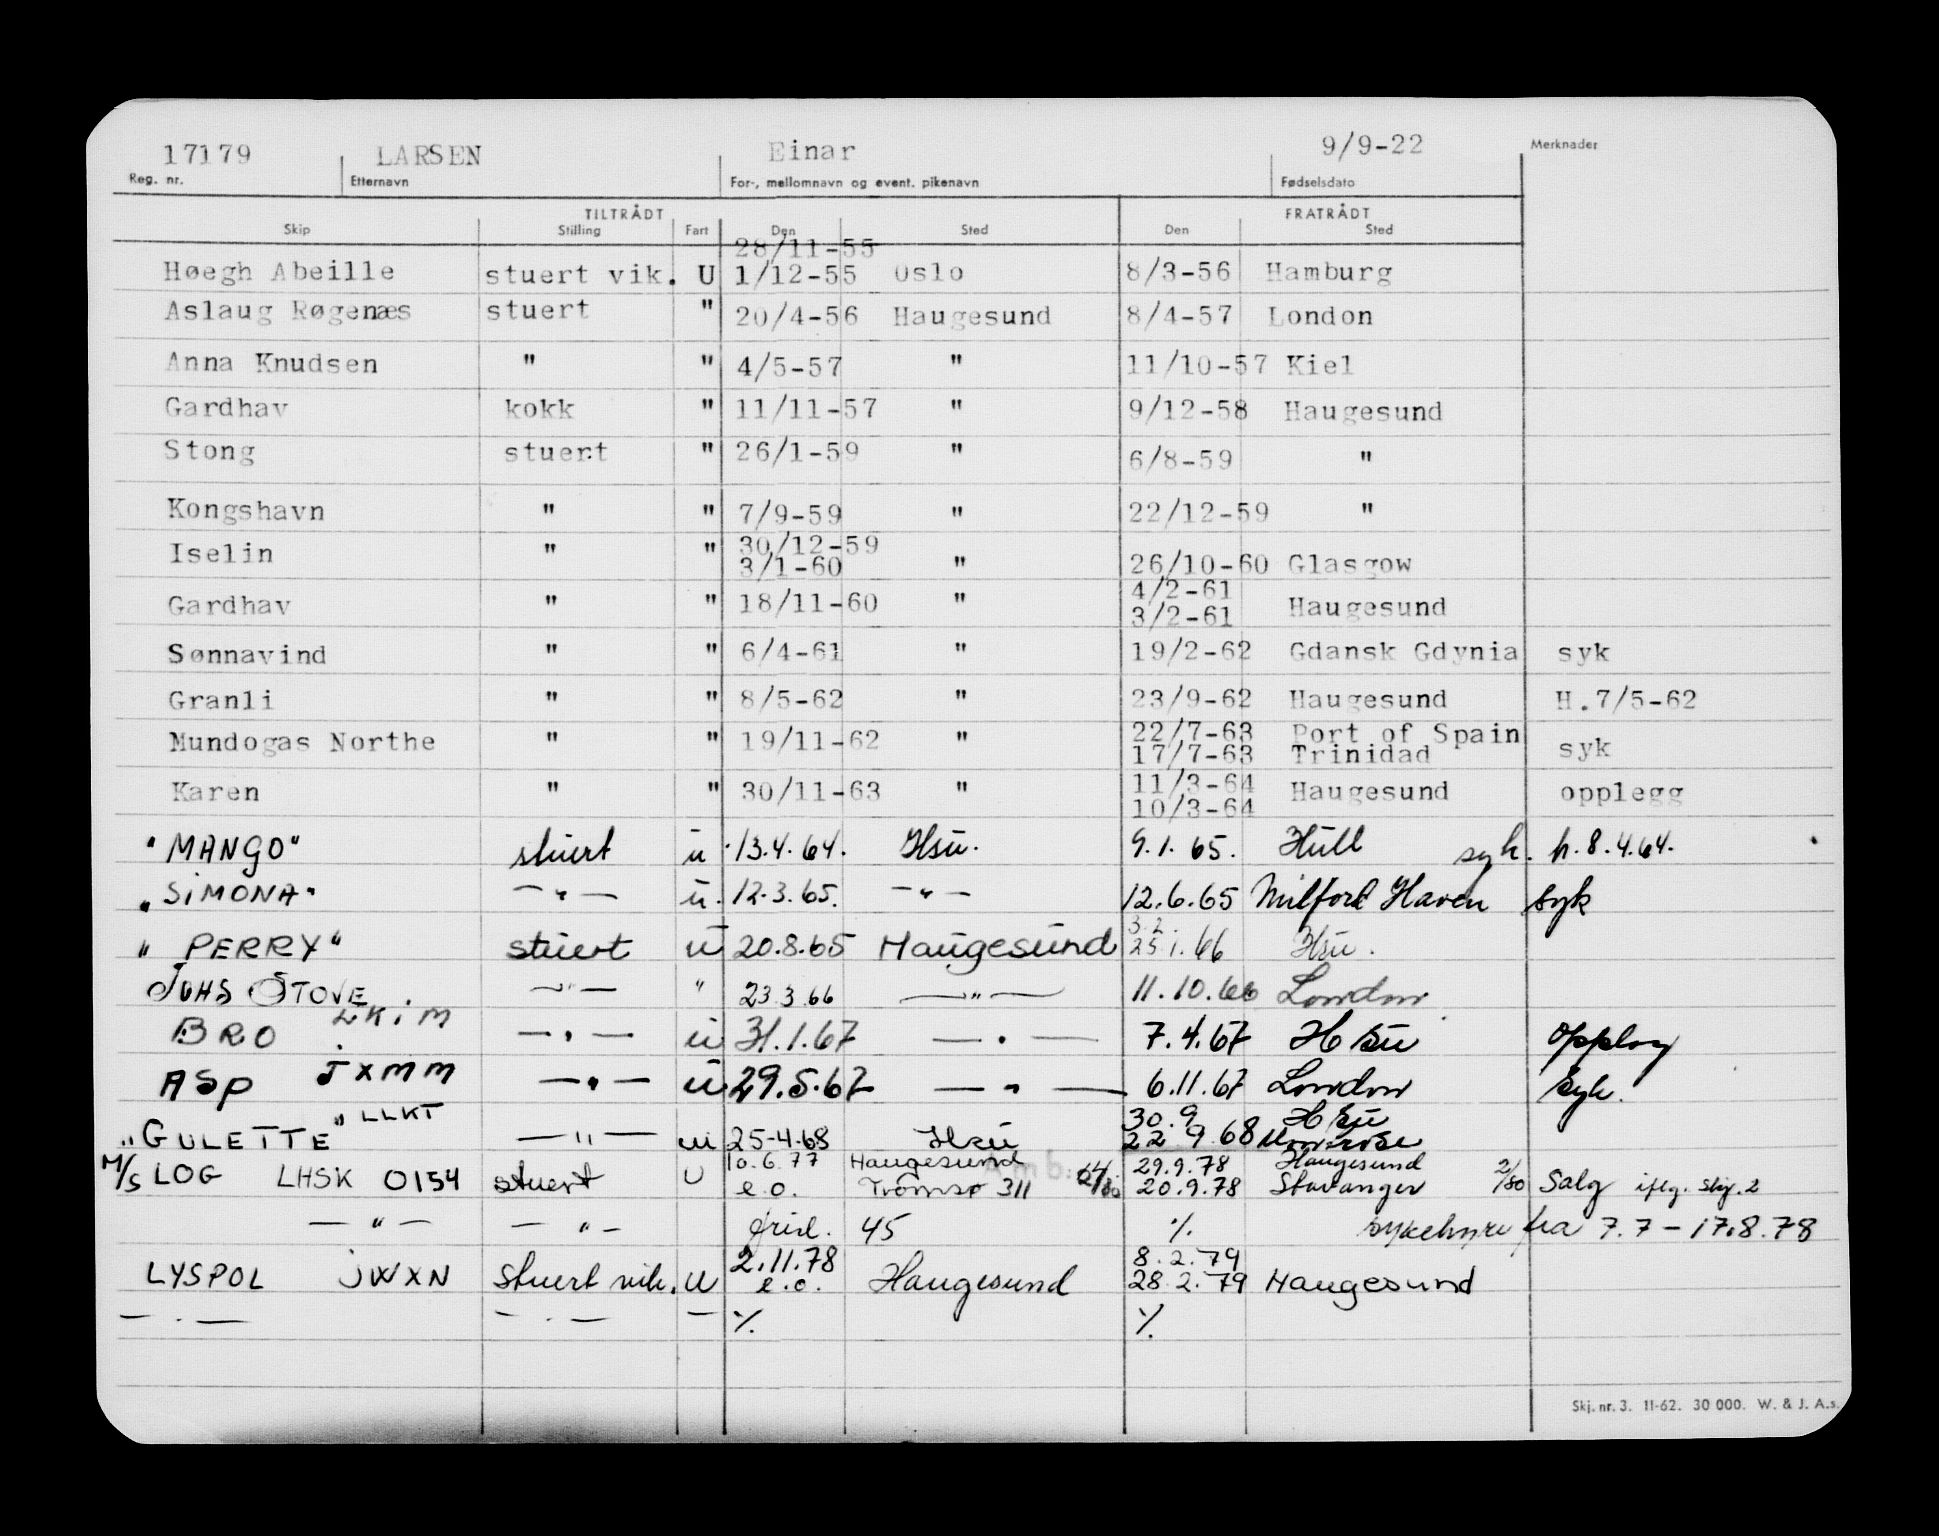 17179 LARSEN Einar 9/9-22 Merknader
Reg. nr. Etternavn For-, mellomnavn og event. pikenavn Fødselsdato
TILTRÅDT FRATRÅDT
Skip Stilling Fart Den Sted Den Sted
28/11-55
Høegh Abeille stuert vik. U 1/12-55 Oslo 8/3-56 Hamburg
Aslaug Røgenæs stuert " 20/4-56 Haugesund 8/4-57 London
Anna Knudsen " " 4/5-57 " 11/10-57 Kiel
Gardhav kokk " 11/11-57 " 9/12-58 Haugesund
Stong stuert " 26/1-59 " 6/8-59 "
Kongshavn " " 7/9-59 " 22/12-59 "
30/12-59
Iselin " " 3/1-60 " 26/10-60 Glasgow
4/2-61
Gardhav " " 18/11-60 " 3/2-61 Haugesund
Sønnavind " " 6/4-61 " 19/2-62 Gdansk Gdynia syk
Granli " " 8/5-62 " 23/9-62 Haugesund H.7/5-62
22/7-63 Port of Spain
Mundogas Northe " " 19/11-62 " 17/7-63 Trinidad syk
11/3-64
Karen " " 30/11-63 " 10/3-64 Haugesund opplegg
"MANGO" stuert u 13.4.64. Hsu. 9.1.65. Hull syk. h.8.4.64.
"SIMONA" — " — u. 12.3.65. — " — 12.6.65 Milford Haven syk
3.2.
" PERRY" stuert u 20.8.65 Haugesund 25.1.66 Hsu.
JOHS STOVE — " — " 23.3.66 — " — 11.10.66 London
BRO LKIM — " — u 31.1.67 — " — 7.4.67 Hsu opplag
ASP JXMM — " — u 29.5.67 — " — 6.11.67 London syk.
30.9 Hsu
"GULETTE" LLKT — " — u 25-4.68 Hsu 22.9.68 Montrose
10.6.77 Haugesund 29.9.78 Haugesund
M/S LOG LHSK 0154 stuert U e.o. Tromsø 311 20.9.78 Stavanger 2/80 Salg iflg. skj. 2
— " — — " — frid. 45 ./. sykehyre fra 7.7-17.8.78
2.11.78 8.2.79
LYSPOL JWXN stuert vik. U e.o. Haugesund 28.2.79 Haugesund
— " — — " — — ./. ./.
Skj. nr. 3. 11-62. 30 000. W. & J. A.s.